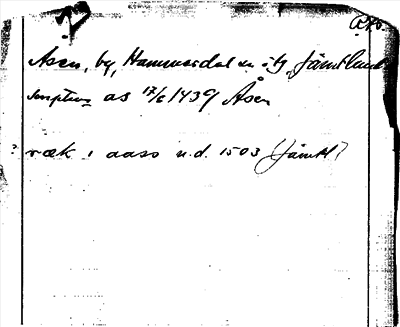 Åsen, by, Hammerdal sn o tg, Jämtland
as 17/6 1439 Åsen
? ræk i aaso u.d. 1503 (Jämtl)